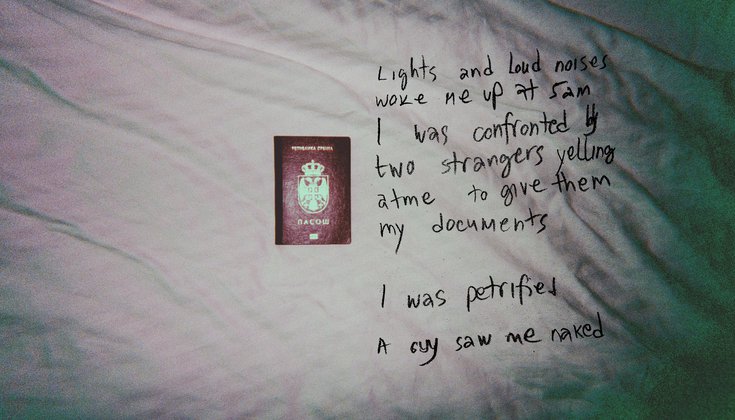 РЕПУБЛИКА СРБИЈА
ПАСОШ
Lights and loud noises
woke me up at 5am
I was confronted by
two strangers yelling
atme to give them
my documents
I was petrified
A guy saw me naked